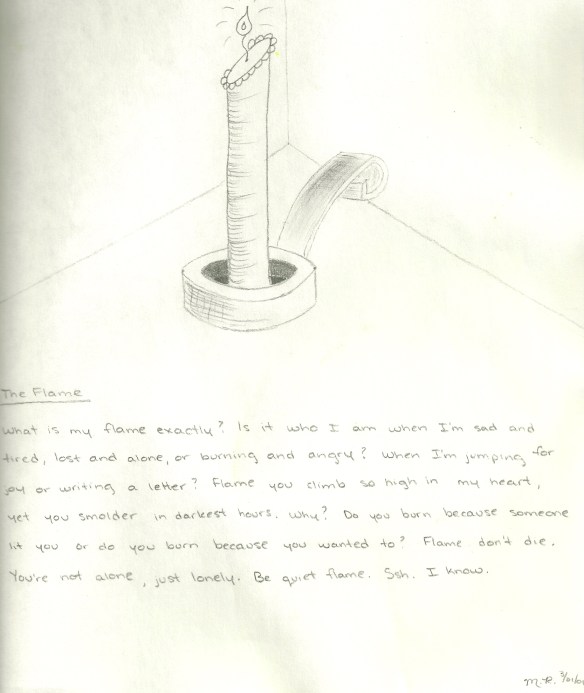 The Flame
What is my flame exactly? Is it who I am when I'm sad and
tired, lost and alone, or burning and angry? When I'm jumping for
joy or writing a letter? Flame you climb so high in my heart,
yet you smolder in darkest hours. Why? Do you burn because someone
lit you or do you burn because you wanted to? Flame don't die.
You're not alone, just lonely. Be quiet flame. Ssh. I know.
M.R.